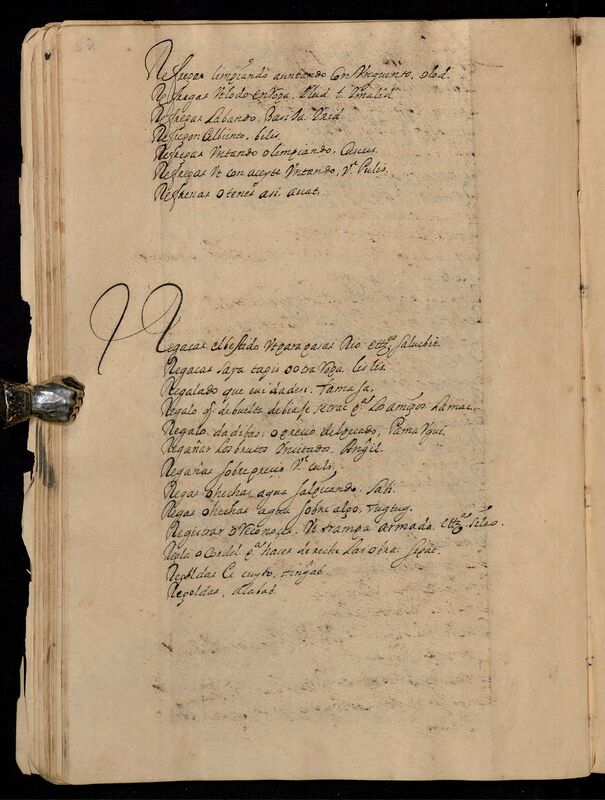 Refregar limpiando auntando Con Vnguento, olod.
Refregar Vt lodo en Ropa, Vlud. t. Vmalid.
Refregar Labando, Basi sa. Vaid
Refregon Calbiento, bilis.
Refregar Vntando o limpiando, Cuscus.
Refregar Vt con aceyte Vntando, Vt. Pulis.
Refrenar o tener asi. auat.
Regacar el bestido Vt para pasar Rio. ettca. Saluchit.
Regacar saya tapis o otra Ropa. lislis.
Regalado que cuidadesi. tamasa.
Regalo q. de buelta debiaje se trae pa. Los amigos Lamac.
Regalo. dadibas. o precio del pecado, Pama Ygui.
Regañar Los brutos Yncitado, Angil.
Regañar sobre precio Vt. culi.
Regar o hechar agua salpicando. sabi.
Regar o hechar agua sobre algo. tugtug.
Registrar o Reconocer. Vt trampa armada. ettca.
Regla o Cordel pa. hacer derecho Las obra. sipat.
Regoldar Ce cuyto, tinghab.
Regoldar, alabab.